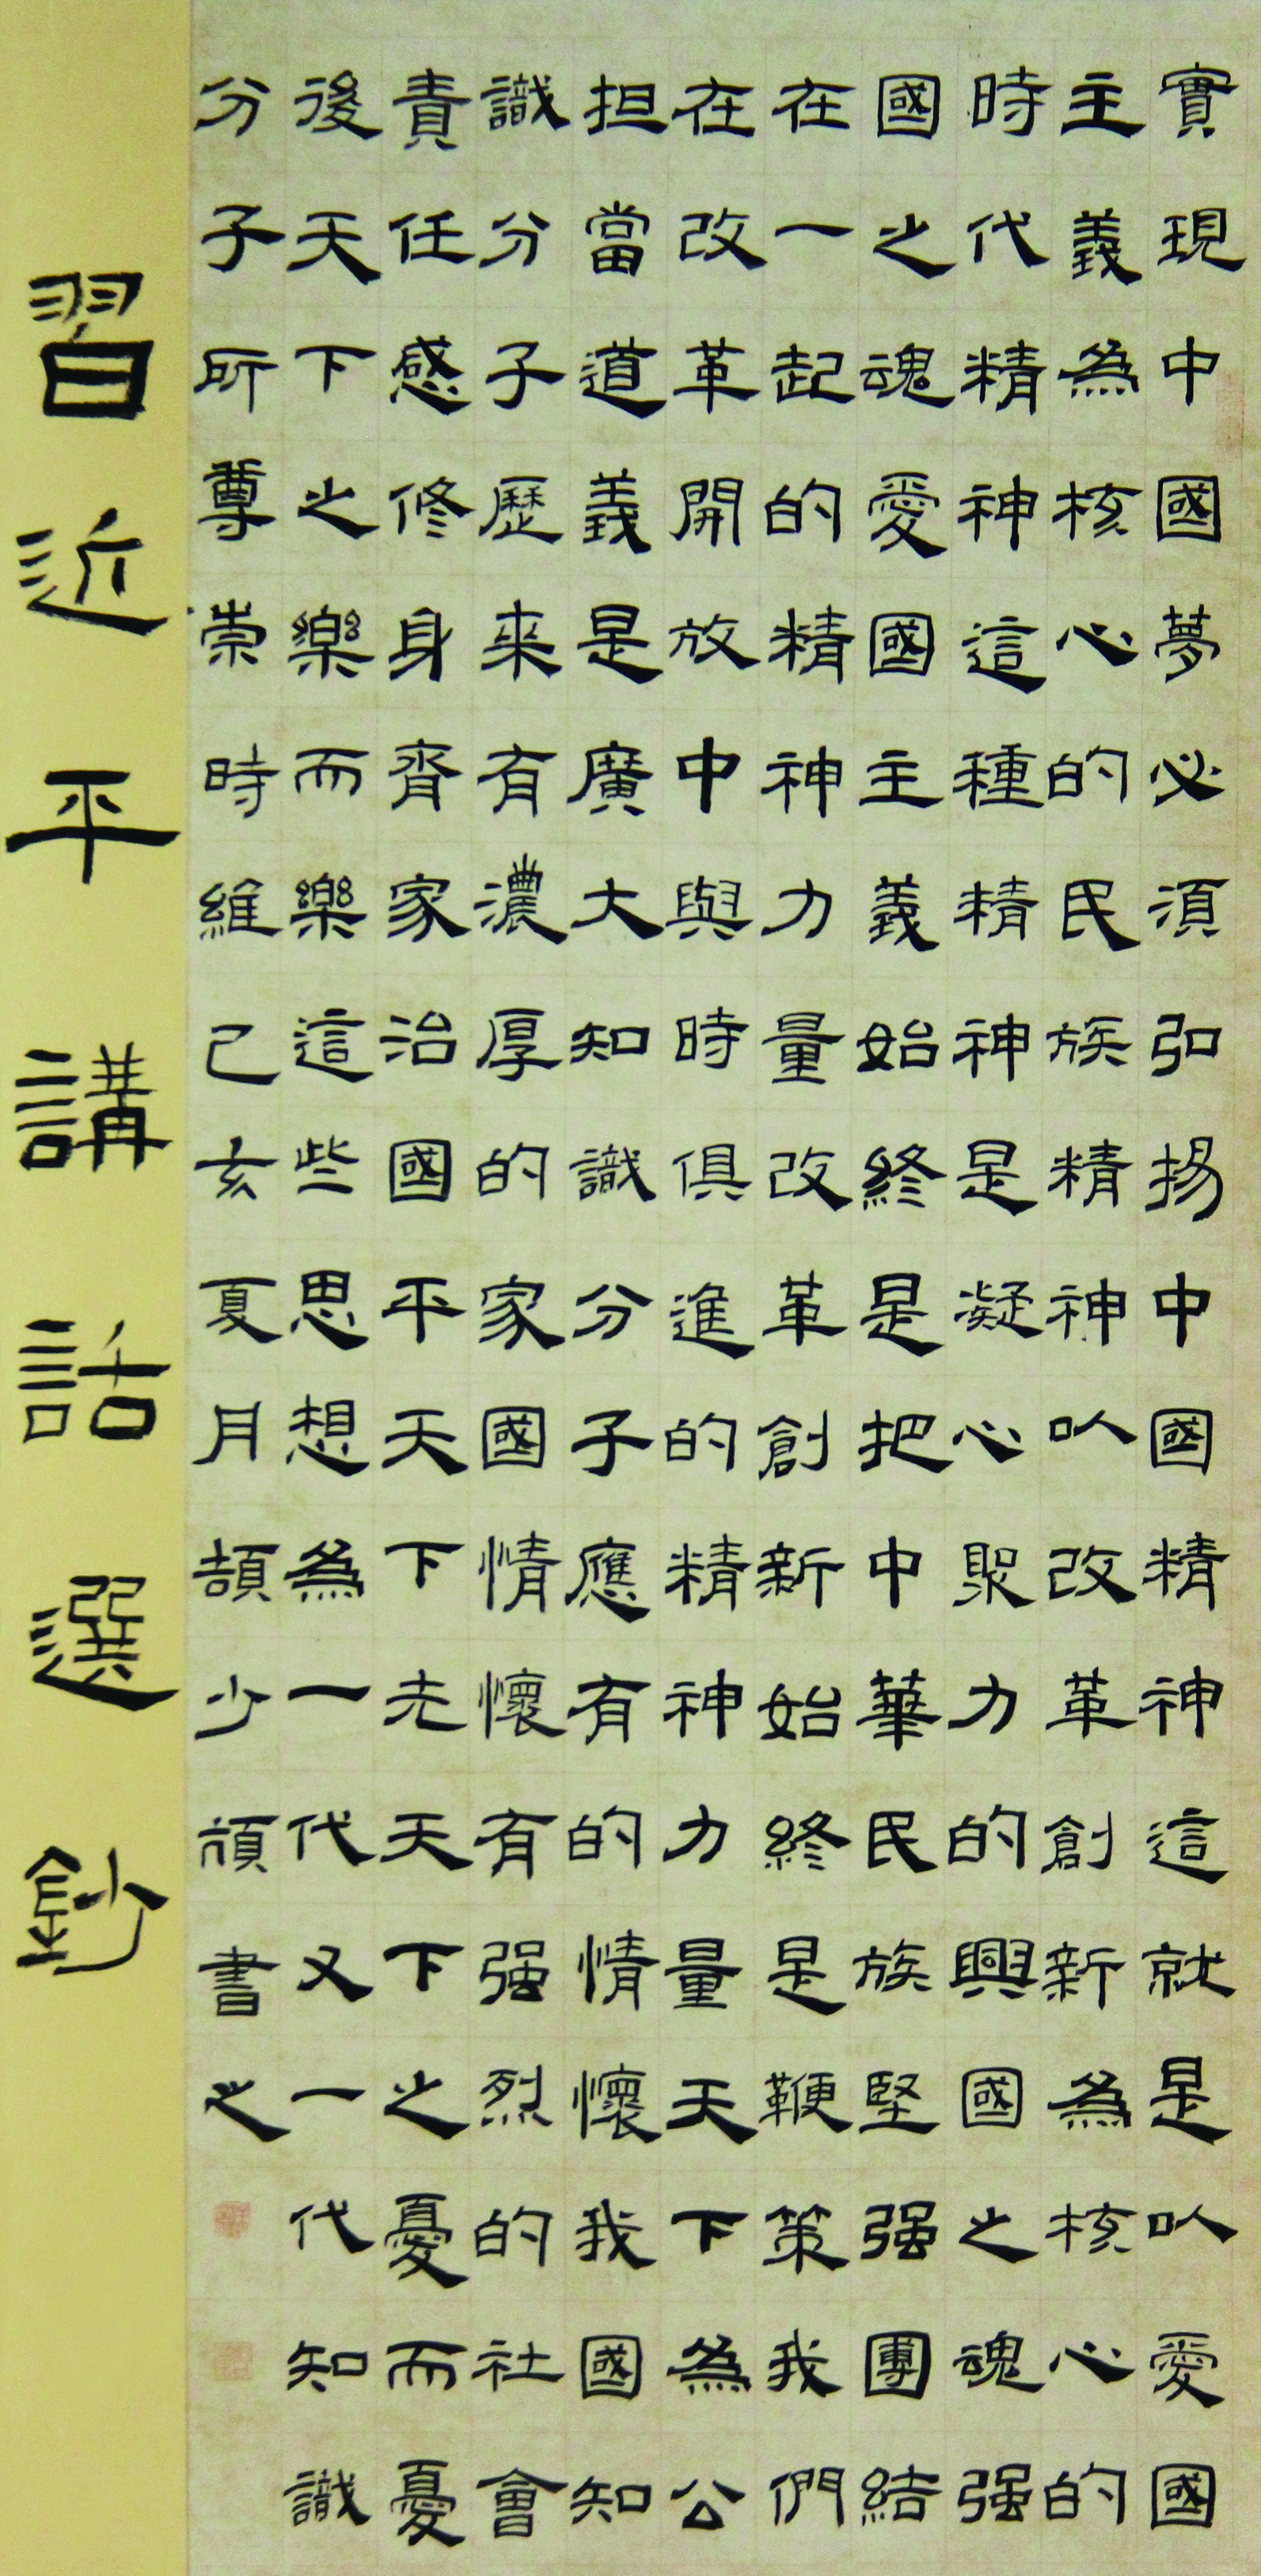 實現中國夢必須弘揚中國精神這就是以愛國
主義為核心的民族精神以改革創新為核心的
時代精神這種精神是凝心聚力的興國之魂强
國之魂愛國主義始終是把中華民族堅强團結
在一起的精神力量改革創新始終是鞭策我們
在改革開放中與時俱進的精神力量天下為公
担當道義是廣大知識分子應有的情懷我國知
識分子歷来有濃厚的家國情懷有强烈的社會
責任感修身齊家治國平天下先天下之憂而憂
後天下之樂而樂這些思想為一代又一代知識
分子所尊崇時維己亥夏月頡少頏書之
習近平講話選鈔